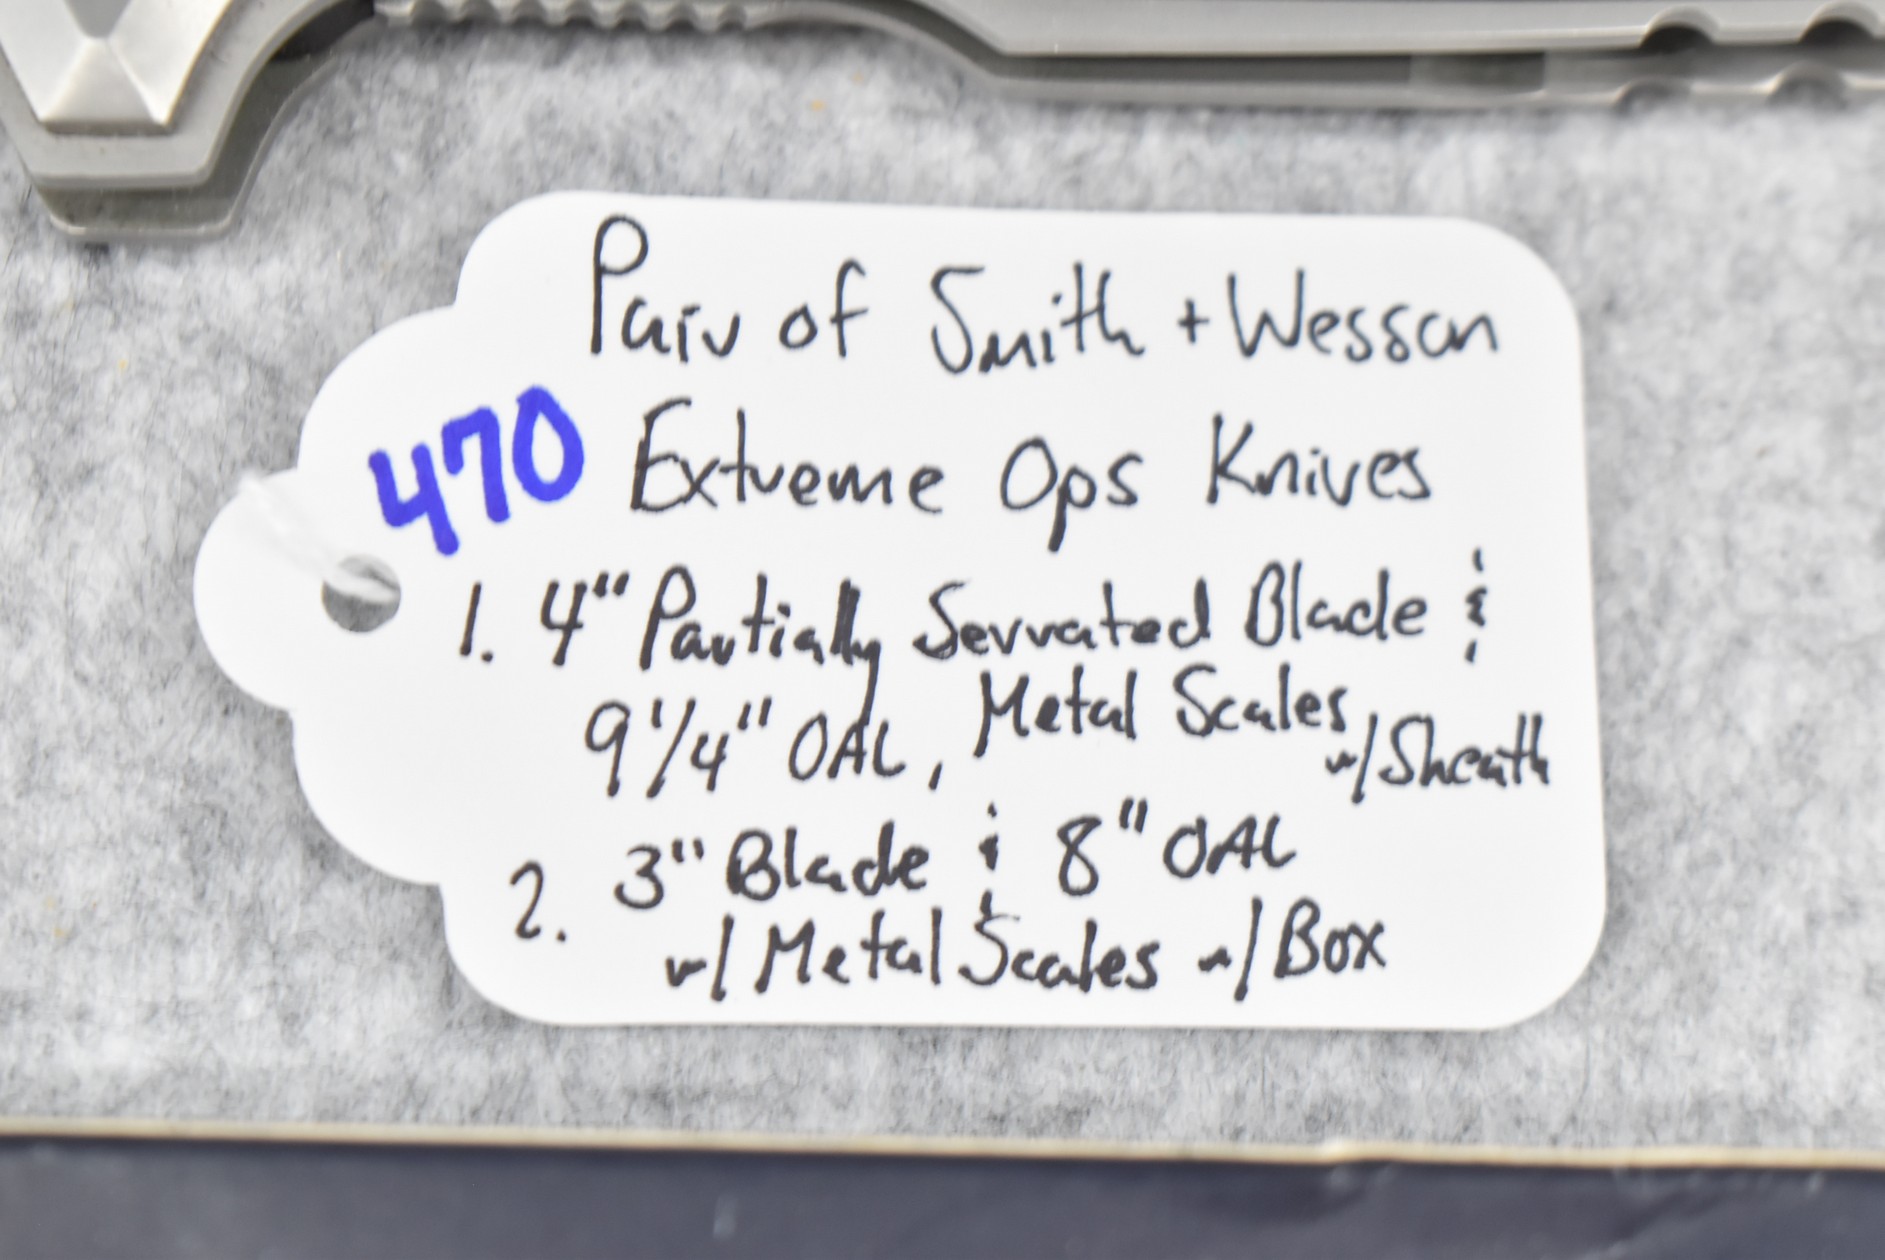 Pair of Smith + Wesson
470
Extreme Ops Knives
1. 4" Partially Serrated Blade &
9 1/4" OAL, Metal Scales
w/ Sheath
2. 3" Blade & 8" OAL
w/ Metal Scales w/ Box